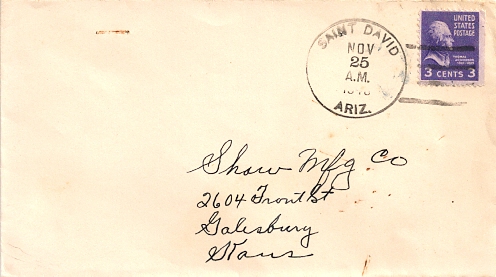 SAINT DAVID
NOV
25
A.M.
ARIZ.
UNITED
STATES
POSTAGE
THOMAS
JEFFERSON
3 CENTS 3
Shaw Mfg Co
2604 Front St
Galesburg
Kans